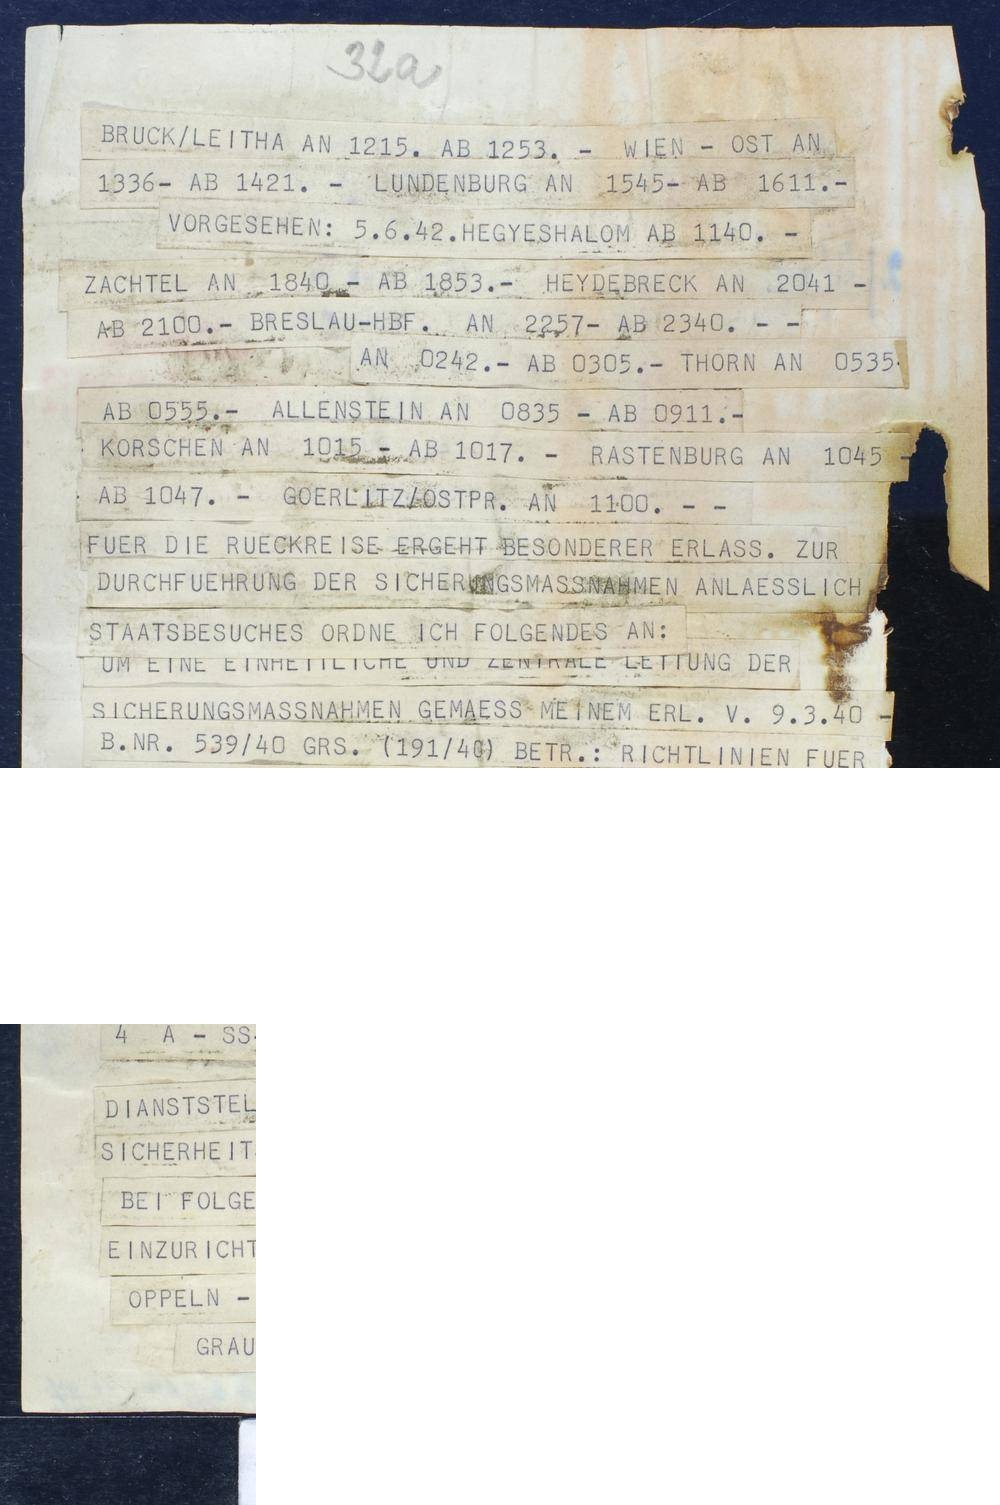 32a
BRUCK/LEITHA AN 1215. AB 1253. - WIEN - OST AN
1336- AB 1421. - LUNDENBURG AN 1545- AB 1611.-
VORGESEHEN: 5.6.42.HEGYESHALOM AB 1140. -
ZACHTEL AN 1840 - AB 1853.- HEYDEBRECK AN 2041 -
AB 2100.- BRESLAU-HBF. AN 2257- AB 2340. - -
AN 0242.- AB 0305.- THORN AN 0535-
AB 0555.- ALLENSTEIN AN 0835 - AB 0911.-
KORSCHEN AN 1015 - AB 1017. - RASTENBURG AN 1045 -
AB 1047. - GOERLITZ/OSTPR. AN 1100. - -
FUER DIE RUECKREISE ERGEHT BESONDERER ERLASS. ZUR
DURCHFUEHRUNG DER SICHERUNGSMASSNAHMEN ANLAESSLICH
STAATSBESUCHES ORDNE ICH FOLGENDES AN:
UM EINE EINHEITLICHE UND ZENTRALE LEITUNG DER
SICHERUNGSMASSNAHMEN GEMAESS MEINEM ERL. V. 9.3.40 -
B.NR. 539/40 GRS. (191/40) BETR.: RICHTLINIEN FUER
4 A - SS-
DIANSTSTEL
SICHERHEIT
BEI FOLGE
EINZURICHT
OPPELN -
GRAU